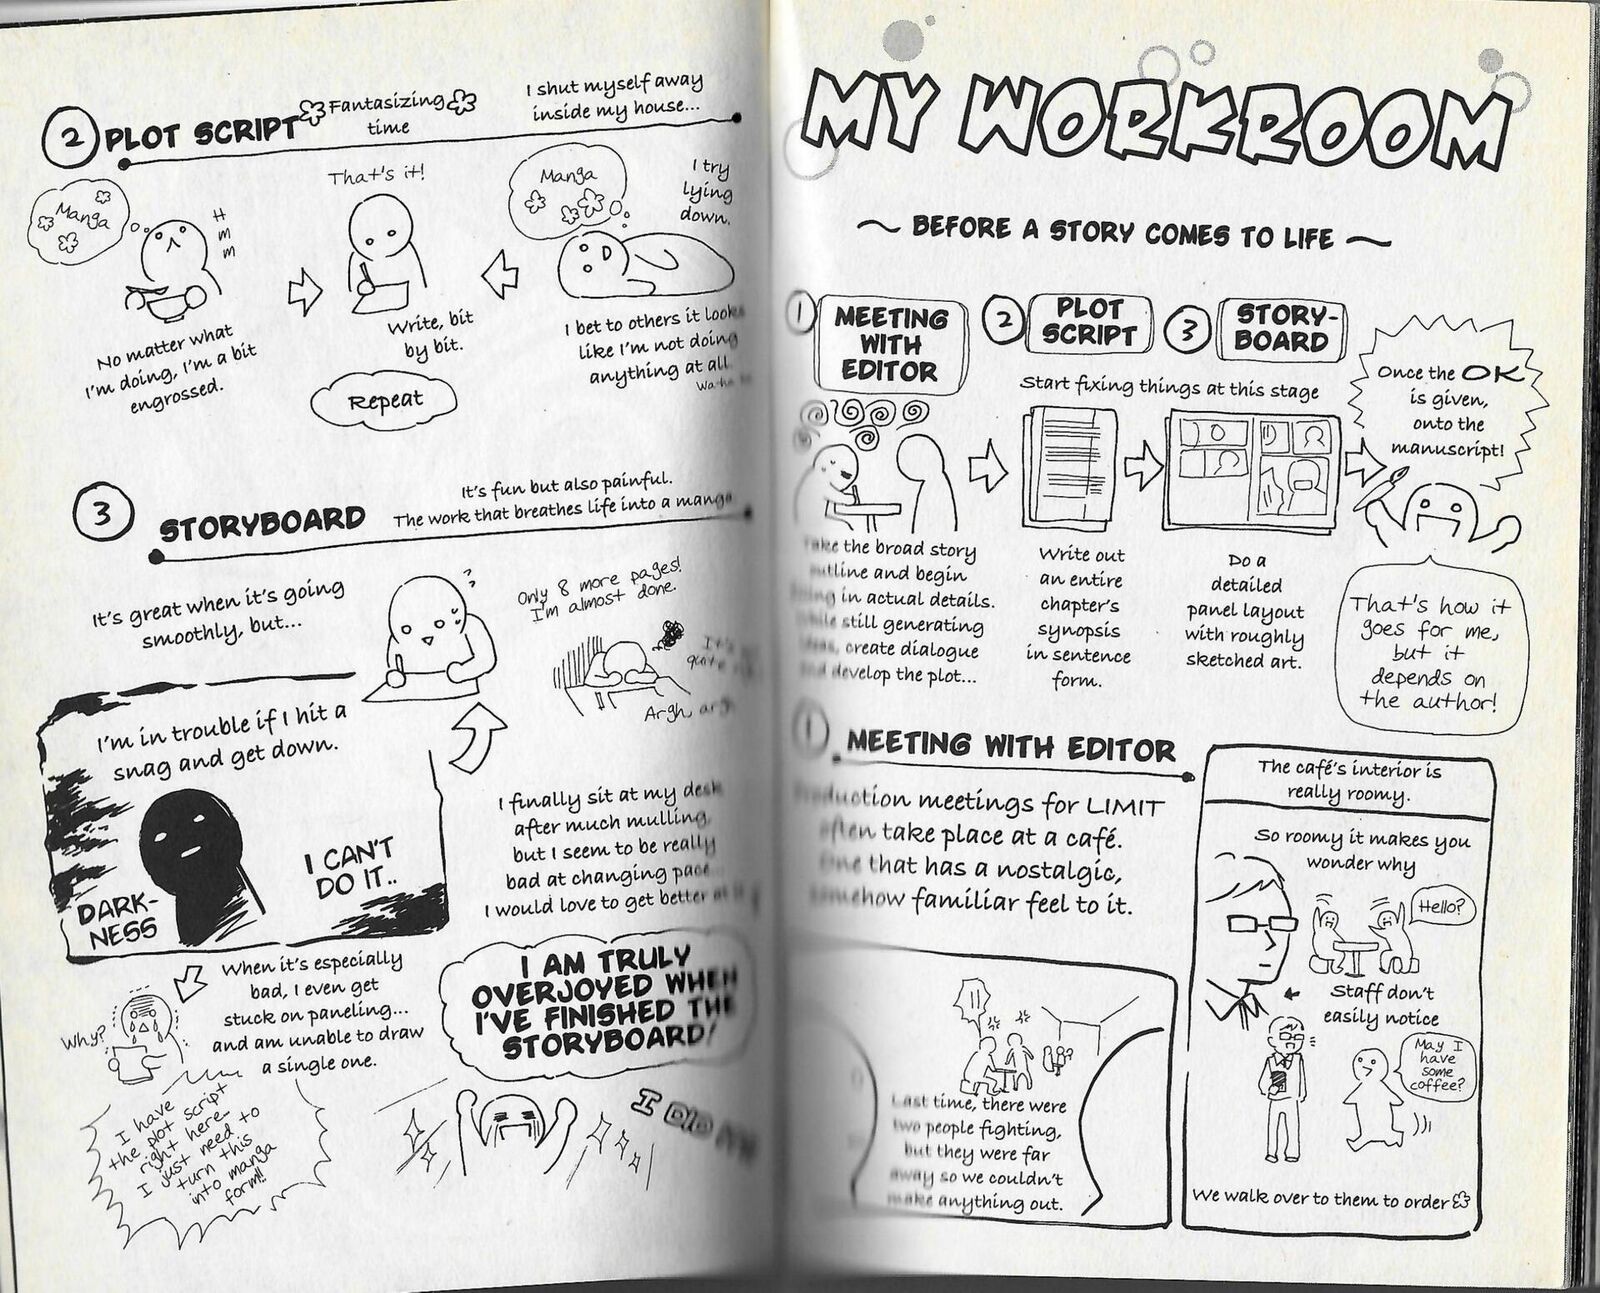 MY WORKROOM
~ BEFORE A STORY COMES TO LIFE ~
1 MEETING
WITH
EDITOR
Take the broad story
outline and begin
in actual details.
While still generating
ideas, create dialogue
and develop the plot...
2 PLOT
SCRIPT
3 STORY-
BOARD
Start fixing things at this stage
Write out
an entire
chapter's
synopsis
in sentence
form.
Do a
detailed
panel layout
with roughly
sketched art.
Once the OK
is given,
onto the
manuscript!
That's how it
goes for me,
but it
depends on
the author!
1 MEETING WITH EDITOR
Production meetings for LIMIT
often take place at a café.
One that has a nostalgic,
somehow familiar feel to it.
The café's interior is
really roomy.
So roomy it makes you
wonder why
Hello?
← Staff don't
easily notice
May I
have
some
coffee?
We walk over to them to order
!!
?
Last time, there were
two people fighting,
but they were far
away so we couldn't
make anything out.
2 PLOT SCRIPT
Fantasizing
time
I shut myself away
inside my house...
Manga
I try
lying
down.
I bet to others it looks
like I'm not doing
anything at all.
That's it!
Write, bit
by bit.
Repeat
Manga
H
m
m
m
No matter what
I'm doing, I'm a bit
engrossed.
3 STORYBOARD
It's fun but also painful.
The work that breathes life into a manga
It's great when it's going
smoothly, but...
Only 8 more pages!
I'm almost done.
Argh, argh
I finally sit at my desk
after much mulling
but I seem to be really
bad at changing pace
I would love to get better at it
I'm in trouble if I hit a
snag and get down.
I CAN'T
DO IT..
DARK-
NESS
When it's especially
bad, I even get
stuck on paneling...
and am unable to draw
a single one.
Why?
I have
the plot script
right here...
I just need to
turn this
into manga
form!!
I AM TRULY
OVERJOYED WHEN
I'VE FINISHED THE
STORYBOARD!
I DID IT!!